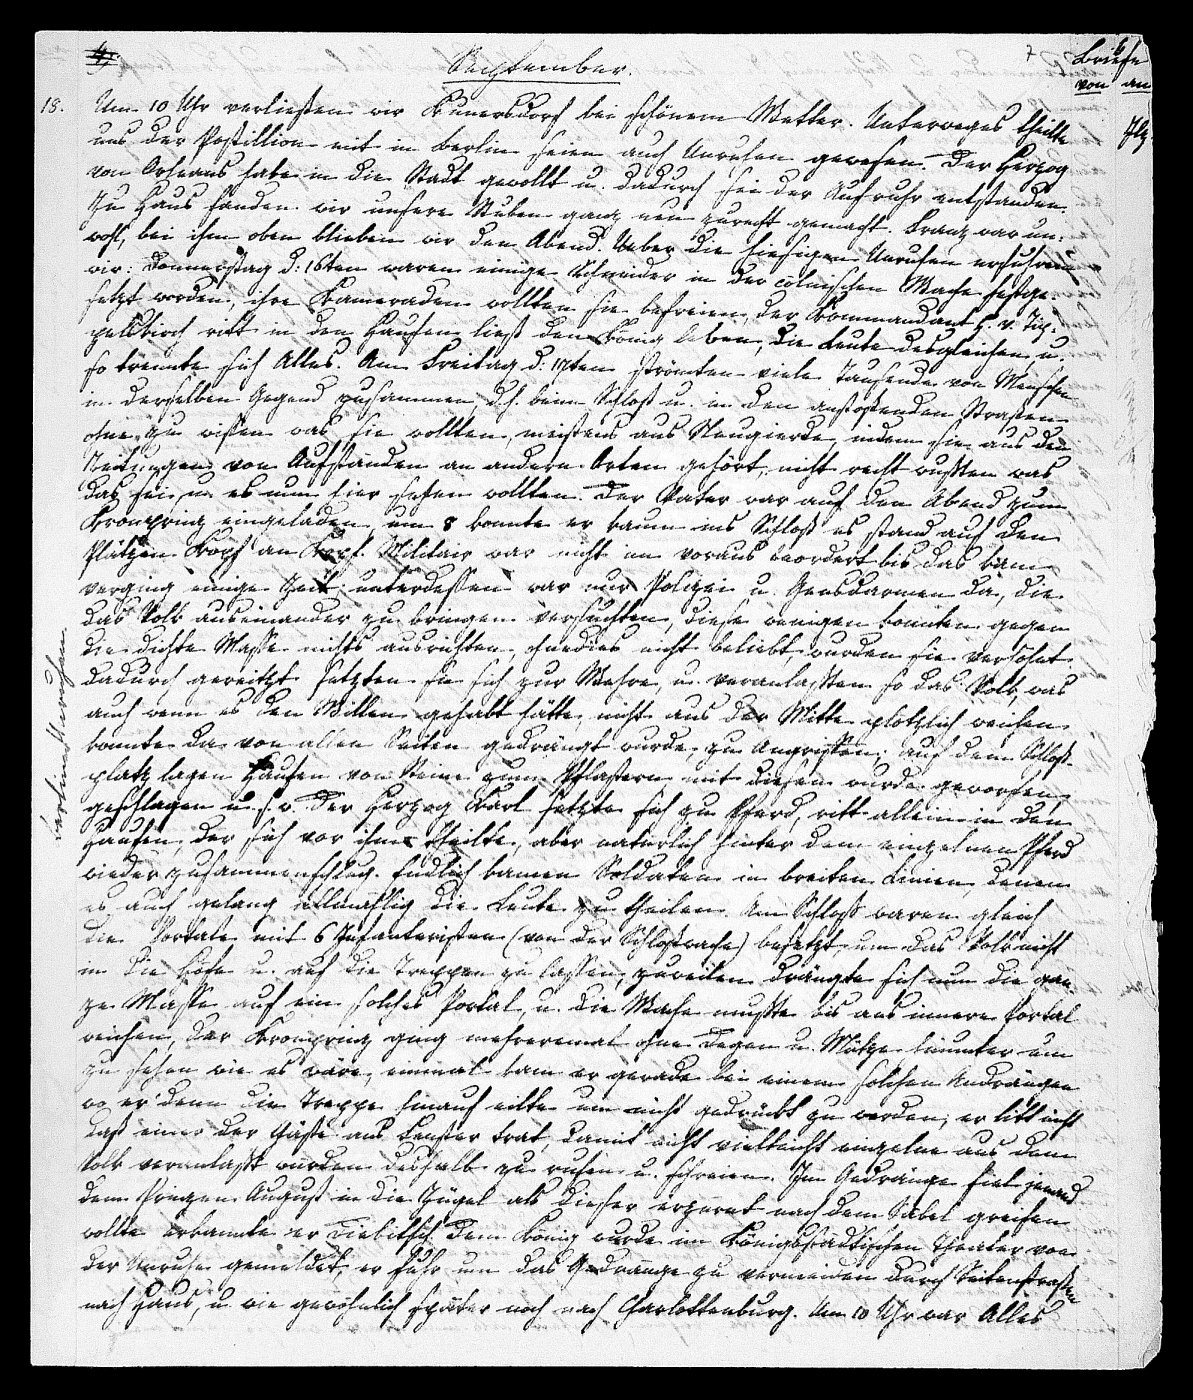 September.
7
Briefe
von an
18. Um 10 Uhr verließen wir Kunersdorf bei schönem Wetter. Unterweges theilte
uns der Postillion mit in Berlin seien auch Unruhen gewesen. Der Herzog
von Orleans habe in die Stadt gewollt u. dadurch sei der Aufruhr entstanden.
Zu Haus fanden wir unsere Stuben ganz neu zurecht gemacht. Franz war un-
wohl, bei ihm oben blieben wir den Abend. Ueber die hiesigen Unruhen erfuhren
wir: Donnerstag d: 16ten waren einige Schneider in der cölnischen Wache festge-
setzt worden, ihre Kameraden wollten sie befreien, der Kommandant H. v. Tip-
pelskirch ritt in den Haufen ließ den König leben, die Leute desgleichen, u.
so trennte sich Alles. Am Freitag d: 17ten strömten viele Tausende von Menschen
in derselben Gegend zusammen, d.h. beim Schloß u. in den anstoßenden Straßen
ohne zu wissen was sie wollten, meistens aus Neugierde, indem sie aus den
Zeitungen von Aufständen an andern Orten gehört, nicht recht wußten was
das sei, u. es nun hier sehen wollten. Der Vater war auf den Abend zum
Kronprinz eingeladen, um 8 konnte er kaum ins Schloß es stand auf den
Plätzen Kopf an Kopf. Militair war nicht im voraus beordert bis das kam
verging einige Zeit, unterdessen war nur Polizei u. Gensdarmen da, die
das Volk auseinander zu bringen versuchten, diese wenigen konnten gegen
die dichte Masse nichts ausrichten, ohnedies nicht beliebt, wurden sie verhöhnt
dadurch gereitzt setzten sie sich zur Wehre, u. veranlaßten so das Volk, was
auch wenn es den Willen gehabt hätte, nicht aus der Mitte plötzlich weichen
konnte da von allen Seiten gedrängt wurde, zu Angriffen; auf dem Schloß-
platz lagen Haufen von Steine zum Pflastern mit diesen wurde geworfen,
geschlagen u. s. w. Der Herzog Karl setzte sich zu Pferd, ritt allein in den
Haufen, der sich vor ihm theilte, aber natürlich hinter dem einzelnen Pferd
wieder zusammenschlug. Endlich kamen Soldaten in breiten Linien denen
es auch gelang allmählig die Leute zu theilen. Am Schloß waren gleich
die Portale mit 6 Infanteristen (von der Schloßwache) besetzt, um das Volk nicht
in die Höfe u. auf die Treppen zu lassen, zuweilen drängte sich nun die gan-
ze Masse auf ein solches Portal, u. die Wache mußte bis ans innere Portal
weichen, der Kronprinz ging mehreremal ohne Degen u. Mütze hinunter um
zu sehen wie es wäre, einmal kam er gerade bei einem solchen Andrängen
wo er denn die Treppe hinauf eilte um nicht gedrückt zu werden, er litt nicht
daß einer der Gäste ans Fenster trat, damit nicht vielleicht einzelne aus dem
Volk veranlaßt würden deshalb zu rufen u. schreien. Im Gedränge fiel jemand
dem Prinzen August in die Zügel als dieser erzürnt nach dem Säbel greifen
wollte erkannte er Diebitsch. Dem König wurde im Königsstädtischen Theater von
der Unruhe gemeldet, er fuhr um das Gedränge zu vermeiden durch Seitenstraßen
nach Haus, u. wie gewöhnlich später noch nach Charlottenburg. Um 10 Uhr war Alles